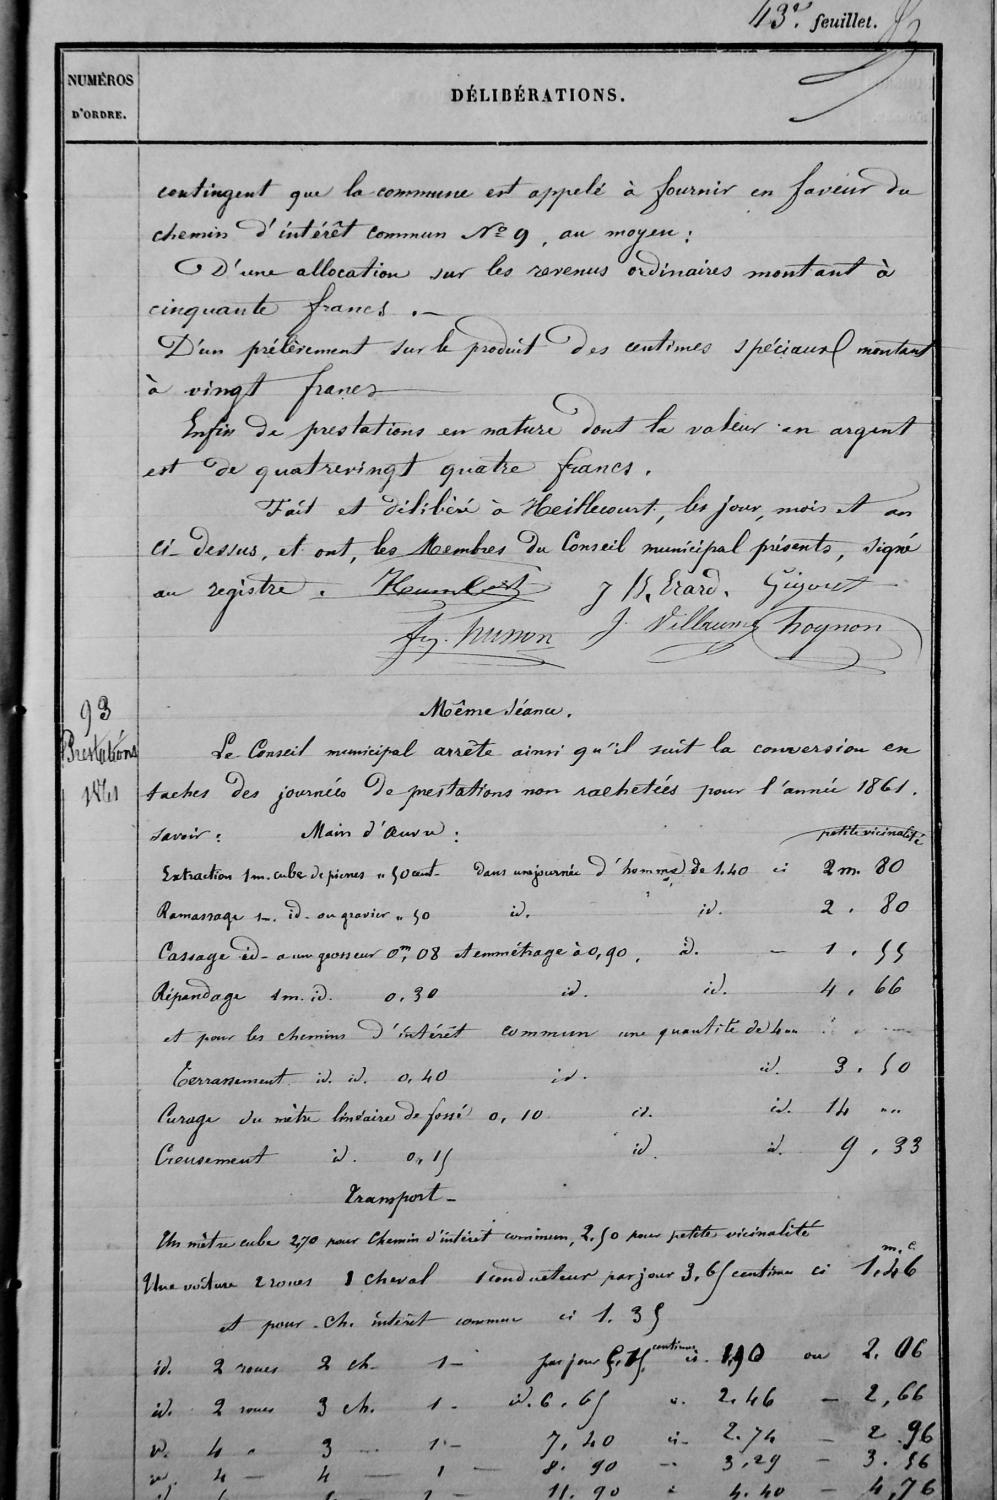 43e. feuillet.
NUMÉROS
D'ORDRE.
DÉLIBÉRATIONS.
contingent que la commune est appelé à fournir en faveur du
chemin d'intérêt commun No 9, au moyen :
D'une allocation sur les revenus ordinaires montant à
cinquante francs . —
D'un prélèvement sur le produit des centimes spéciaux montant
à vingt francs
Enfin de prestations en nature dont la valeur en argent
est de quatrevingt quatre francs.
Fait et délibéré à Heillecourt, les jour, mois et an
ci-dessus, et ont, les Membres du Conseil municipal présents, signé
au registre. Humbert J B. Erard. Gigout
husson J. Villaume hoynon
93
Prestations
1861
Même séance.
Le Conseil municipal arrête ainsi qu'il suit la conversion en
taches des journées de prestations non rachetées pour l'année 1861.
savoir : Main d'œuvre : petite vicinalité
Extraction 1 m. cube de pierres " 50 cent dans une journée d'homme de 1.40 ci 2 m. 80
Ramassage 1 — id — ou gravier " 50 id. id. 2 . 80
Cassage id — a une grosseur 0m,08 et emmétrage à 0,90, id. — 1 . 55
Répandage 1 m. id. 0,30 id. id. 4 . 66
et pour les chemins d'intérêt commun une quantité de 4 "" 
Terrassement id. id. 0,40 id. id. 3 . 50
Curage du mètre linéaire de fossé 0,10 id. id. 14 ""
Creusement id. 0,15 id. id. 9 . 33
Transport —
Un mètre cube 2,70 pour chemin d'intérêt commun, 2.50 pour petite vicinalité
m. c.
Une voiture 2 roues 1 cheval 1 conducteur par jour 3,65 centimes ci 1,46
et pour ch. intérêt commun ci 1.35
id. 2 roues 2 ch. 1 — par jour 5.15 centimes ci 1,90 ou 2.06
id. 2 roues 3 ch. 1 — id. 6.65 " 2.46 — 2,66
id. 4 " 3 — 1 — 7,40 ci — 2.74 — 2.96
id. 4 — 4 — 1 — 8.90 — 3,29 — 3.56
11.90 " 4.40 — 4,76